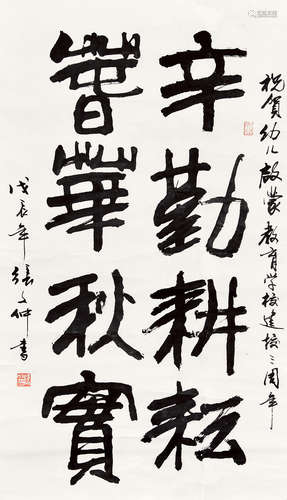 祝賀幼儿啟蒙教育学校建校三周年
辛勤耕耘
春華秋實
戊辰年張文仲書